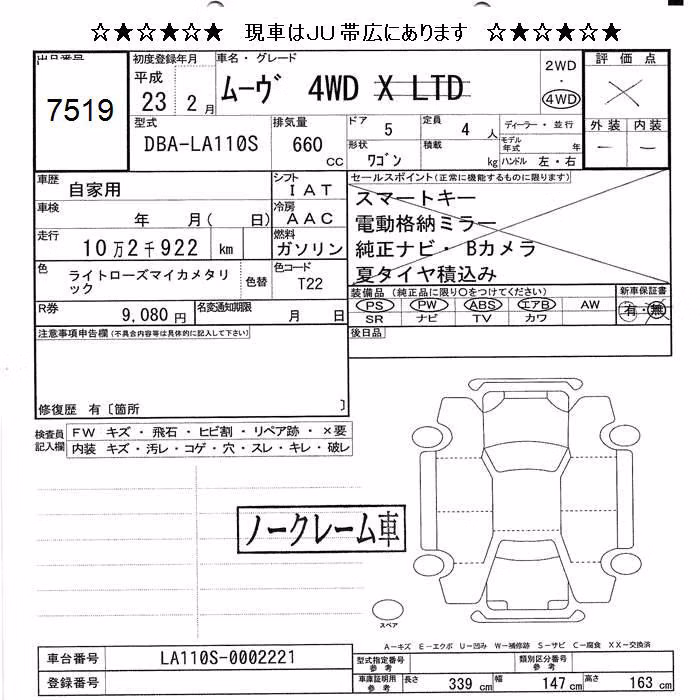 ☆★☆★☆★ 現車はJU帯広にあります ☆★☆★☆★
出品番号
7519
初度登録年月
平成
23 2月
車名・グレード
ムーヴ 4WD X LTD
2WD
・
4WD
評価点
外装 内装
― ―
型式
DBA-LA110S
排気量
660
cc
ドア
5
定員
4 人
形状
ワゴン
積載
kg
ディーラー・並行
モデル
年式 年
ハンドル 左・右
車歴
自家用
シフト
IAT
車検
年 月( 日)
冷房
AAC
走行
10万2千922 km
燃料
ガソリン
色
ライトローズマイカメタリ
ック
色替
色コード
T22
R券
9,080円
名変通知期限
月 日
セールスポイント(正常に機能するものに限ります)
スマートキー
電動格納ミラー
純正ナビ・Bカメラ
夏タイヤ積込み
装備品(純正品に限り○をつけてください)
PS PW ABS エアB AW
SR ナビ TV カワ
新車保証書
有・無
注意事項申告欄(不具合内容等は具体的に記入して下さい)
修復歴 有〔箇所 〕
後日品
検査員
記入欄
FW キズ・飛石・ヒビ割・リペア跡・×要
内装 キズ・汚レ・コゲ・穴・スレ・キレ・破レ
ノークレーム車
スペア
A-キズ E-エクボ U-凹み W-補修跡 S-サビ C-腐食 XX-交換済
車台番号
LA110S-0002221
登録番号
型式指定番号
参考
類別区分番号
参考
車庫証明用
参考
長さ 339 cm
幅 147 cm
高さ 163 cm